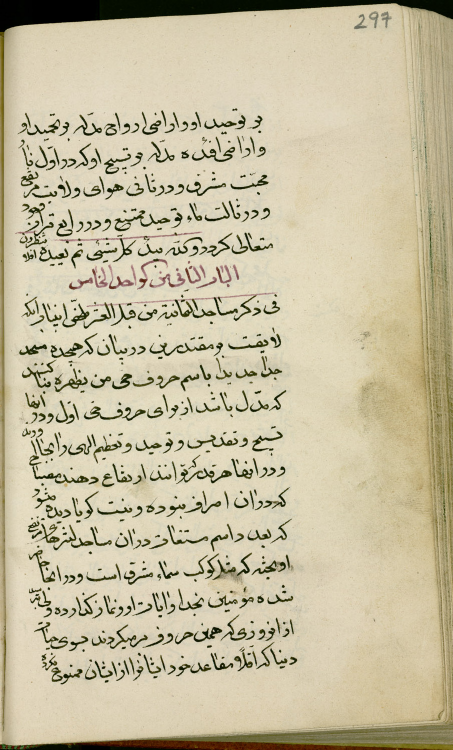 297
بر توحید او و اراضی ارواح تدل بر تحمید او
و اراضی افئده تدل بر تسبیح او که در اول نار
محبت مشرق و در ثانی هوای ولایت مرتفع
و در ثالث ماء توحید ممتنع و در رابع تراب وجود
متعالی گردد و کل یبدء کل شیئ ثم یعیده
الباب الثانی من الواحد الخامس
فی ذکر مساجد الثمانیة من قبل العز طفی ایفا و آنکه
لایق است بر مقتدرین در بیان که هیجده مسجد
جداجدا باسم حروف حی من یظهره الله بنا کنند
که تدل باشد از برای حروف حی اول و در آنها
تسبیح و تقدیس و توحید و تعظیم الهی را بجا
و در آنها هر قدر که توانند ارتفاع دهند مصباح
که در آن اسراف نبوده و نیست گویا دیده میشود
که بعدد اسم مستغاث در آن مساجد لنترهای مرتفع
آویخته که مثل کوکب سماء مشرق است و در آنجا حاضر
شده مؤمنین بخدا و آیات او و نماز گذارده ولی
از آن روزی که همین حروف سیر میکردند بسوی
دنیا که اقلا مقاعد خود ایشان را از ایشان ممنوع نکرده